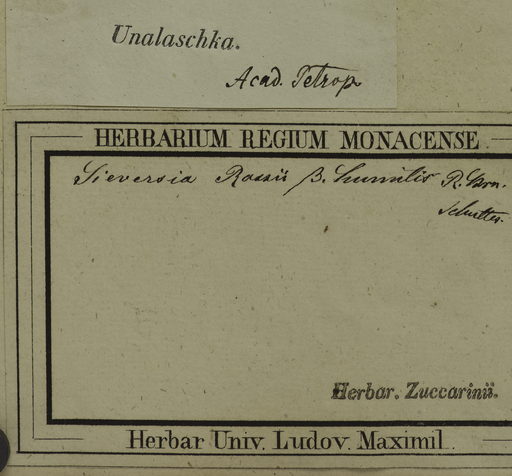 Unalaschka.
Acad. Petrop
HERBARIUM REGIUM MONACENSE
Sieversia Rossii β. humilis R. Brn.
Schultes.
Herbar. Zuccarinii.
Herbar Univ. Ludov. Maximil.